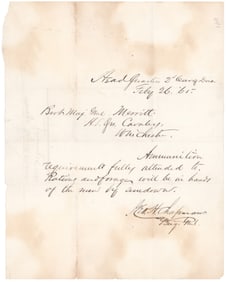 Head Quarters 3d Cavy Div
Feby 26. 65.
Bvt Maj Genl Merritt
Cavalry
Winchester
Ammunition
requirements fully attended to
Rations and forage will be in hands
of the men by sundown.
Geo H Chapman
Brig Gen